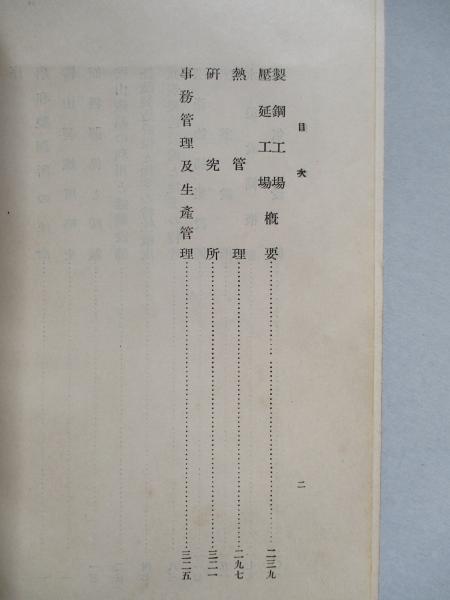 目次
製鋼工場
壓延工場概要……二三九
熱管理……二九七
研究所……三二一
事務管理及生產管理……三二五
二